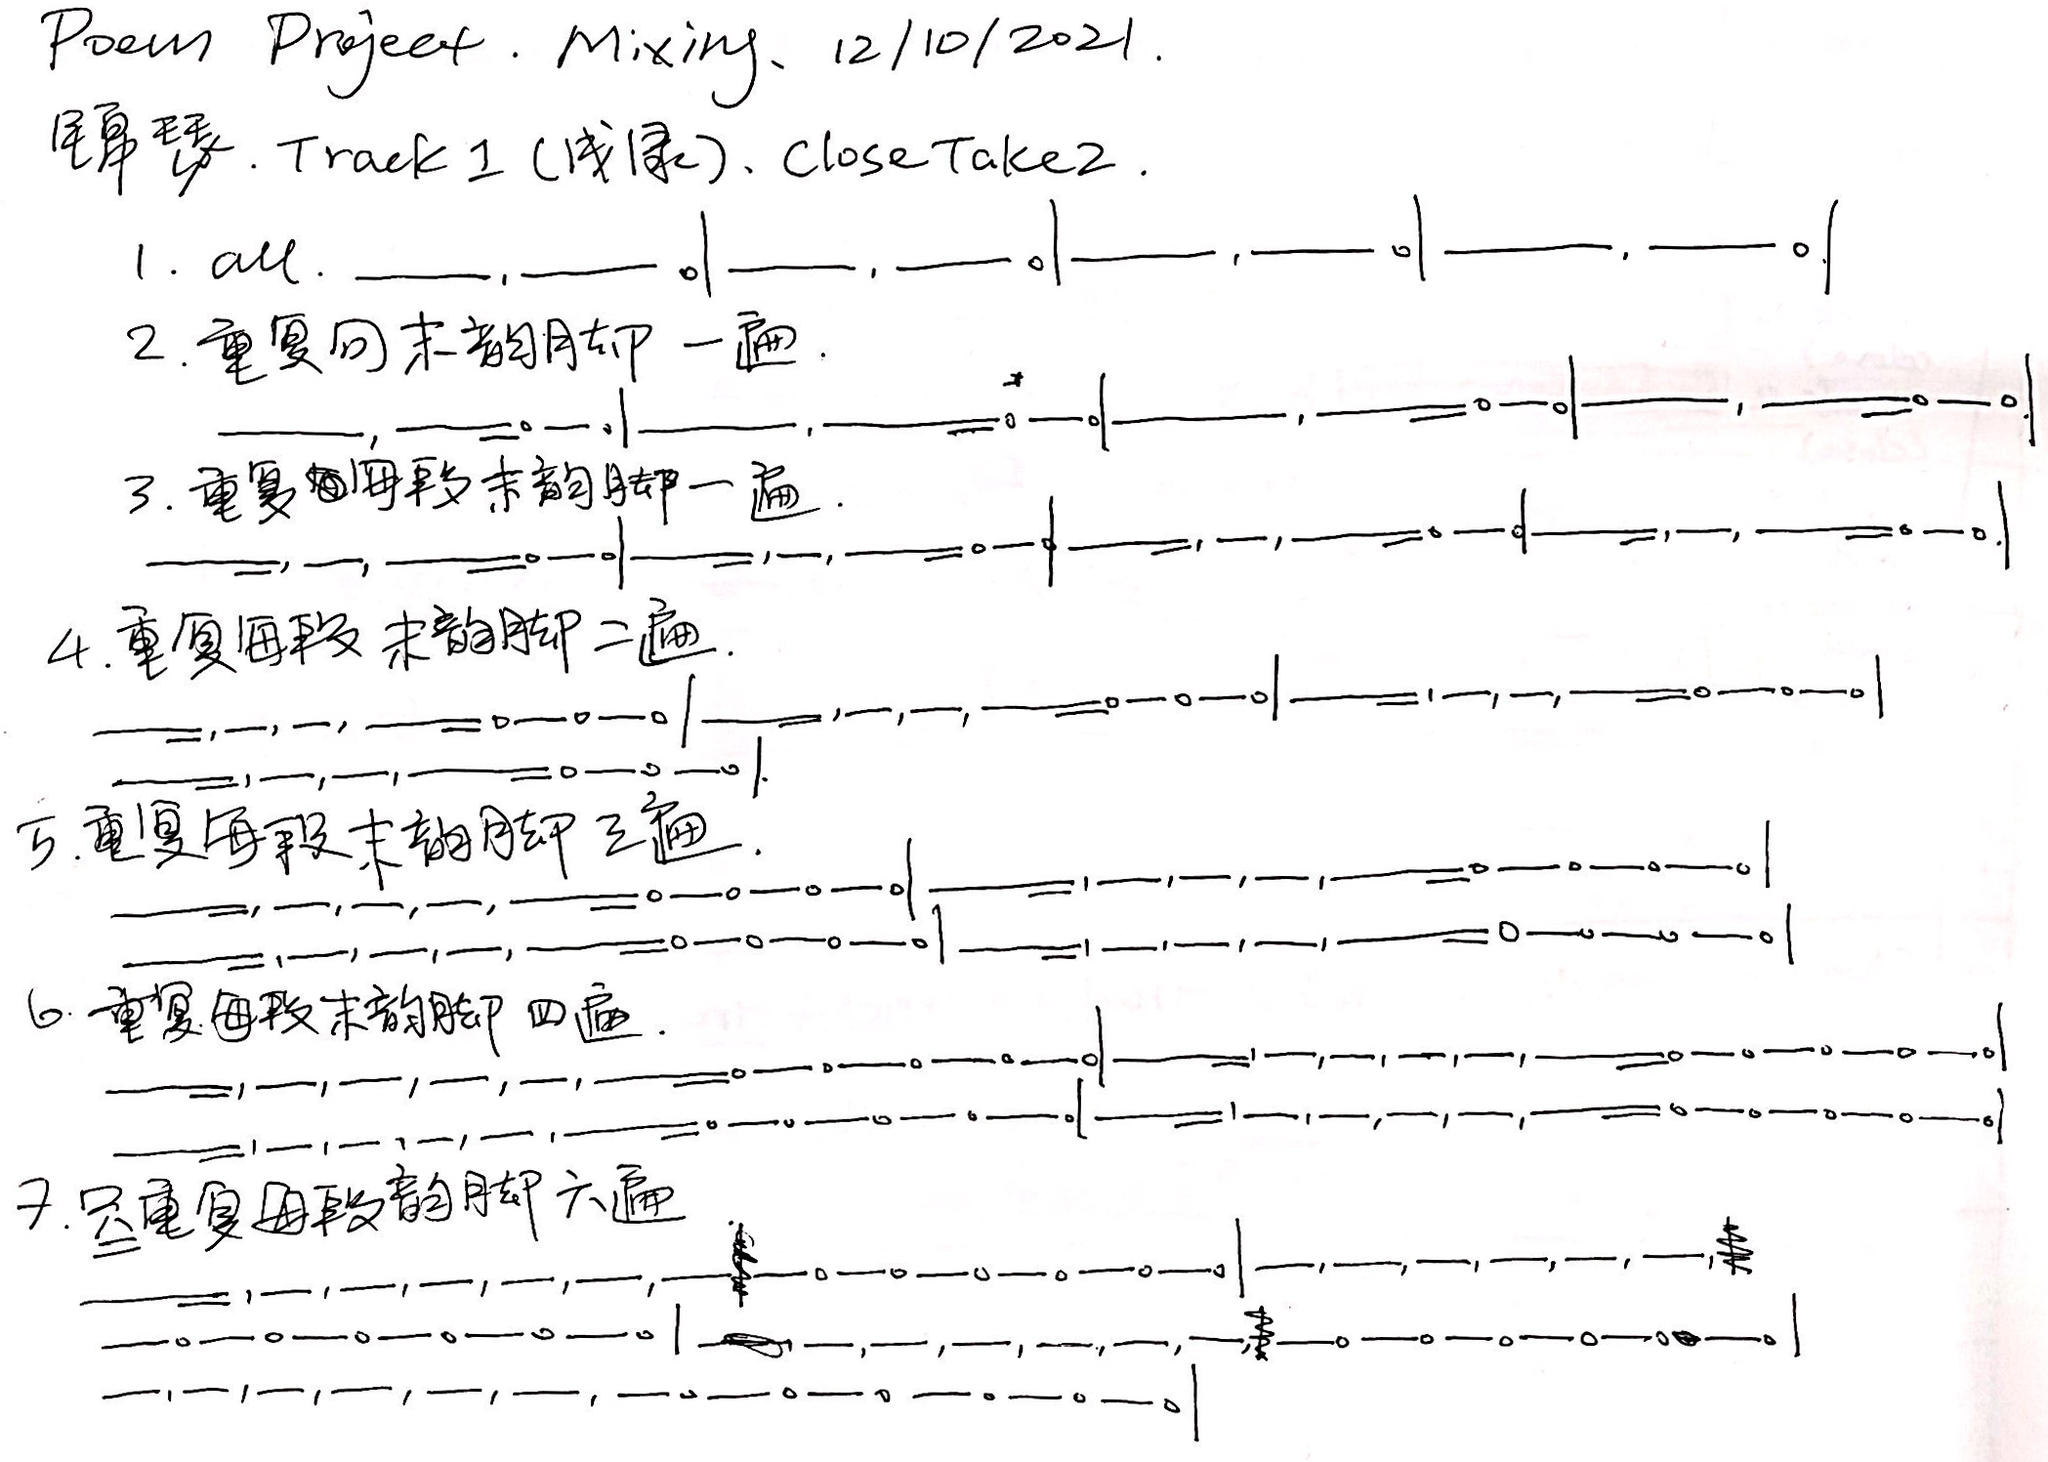 Poem Project. Mixing、12/10/2021.
Track 1 (浅绿)、Close Take 2.
1. all.
2. 重复句末韵脚一遍.
3. 重复每段末韵脚一遍.
4. 重复每段末韵脚二遍.
5. 重复每段末韵脚三遍.
6. 重复每段末韵脚四遍.
7. 只重复每段韵脚六遍